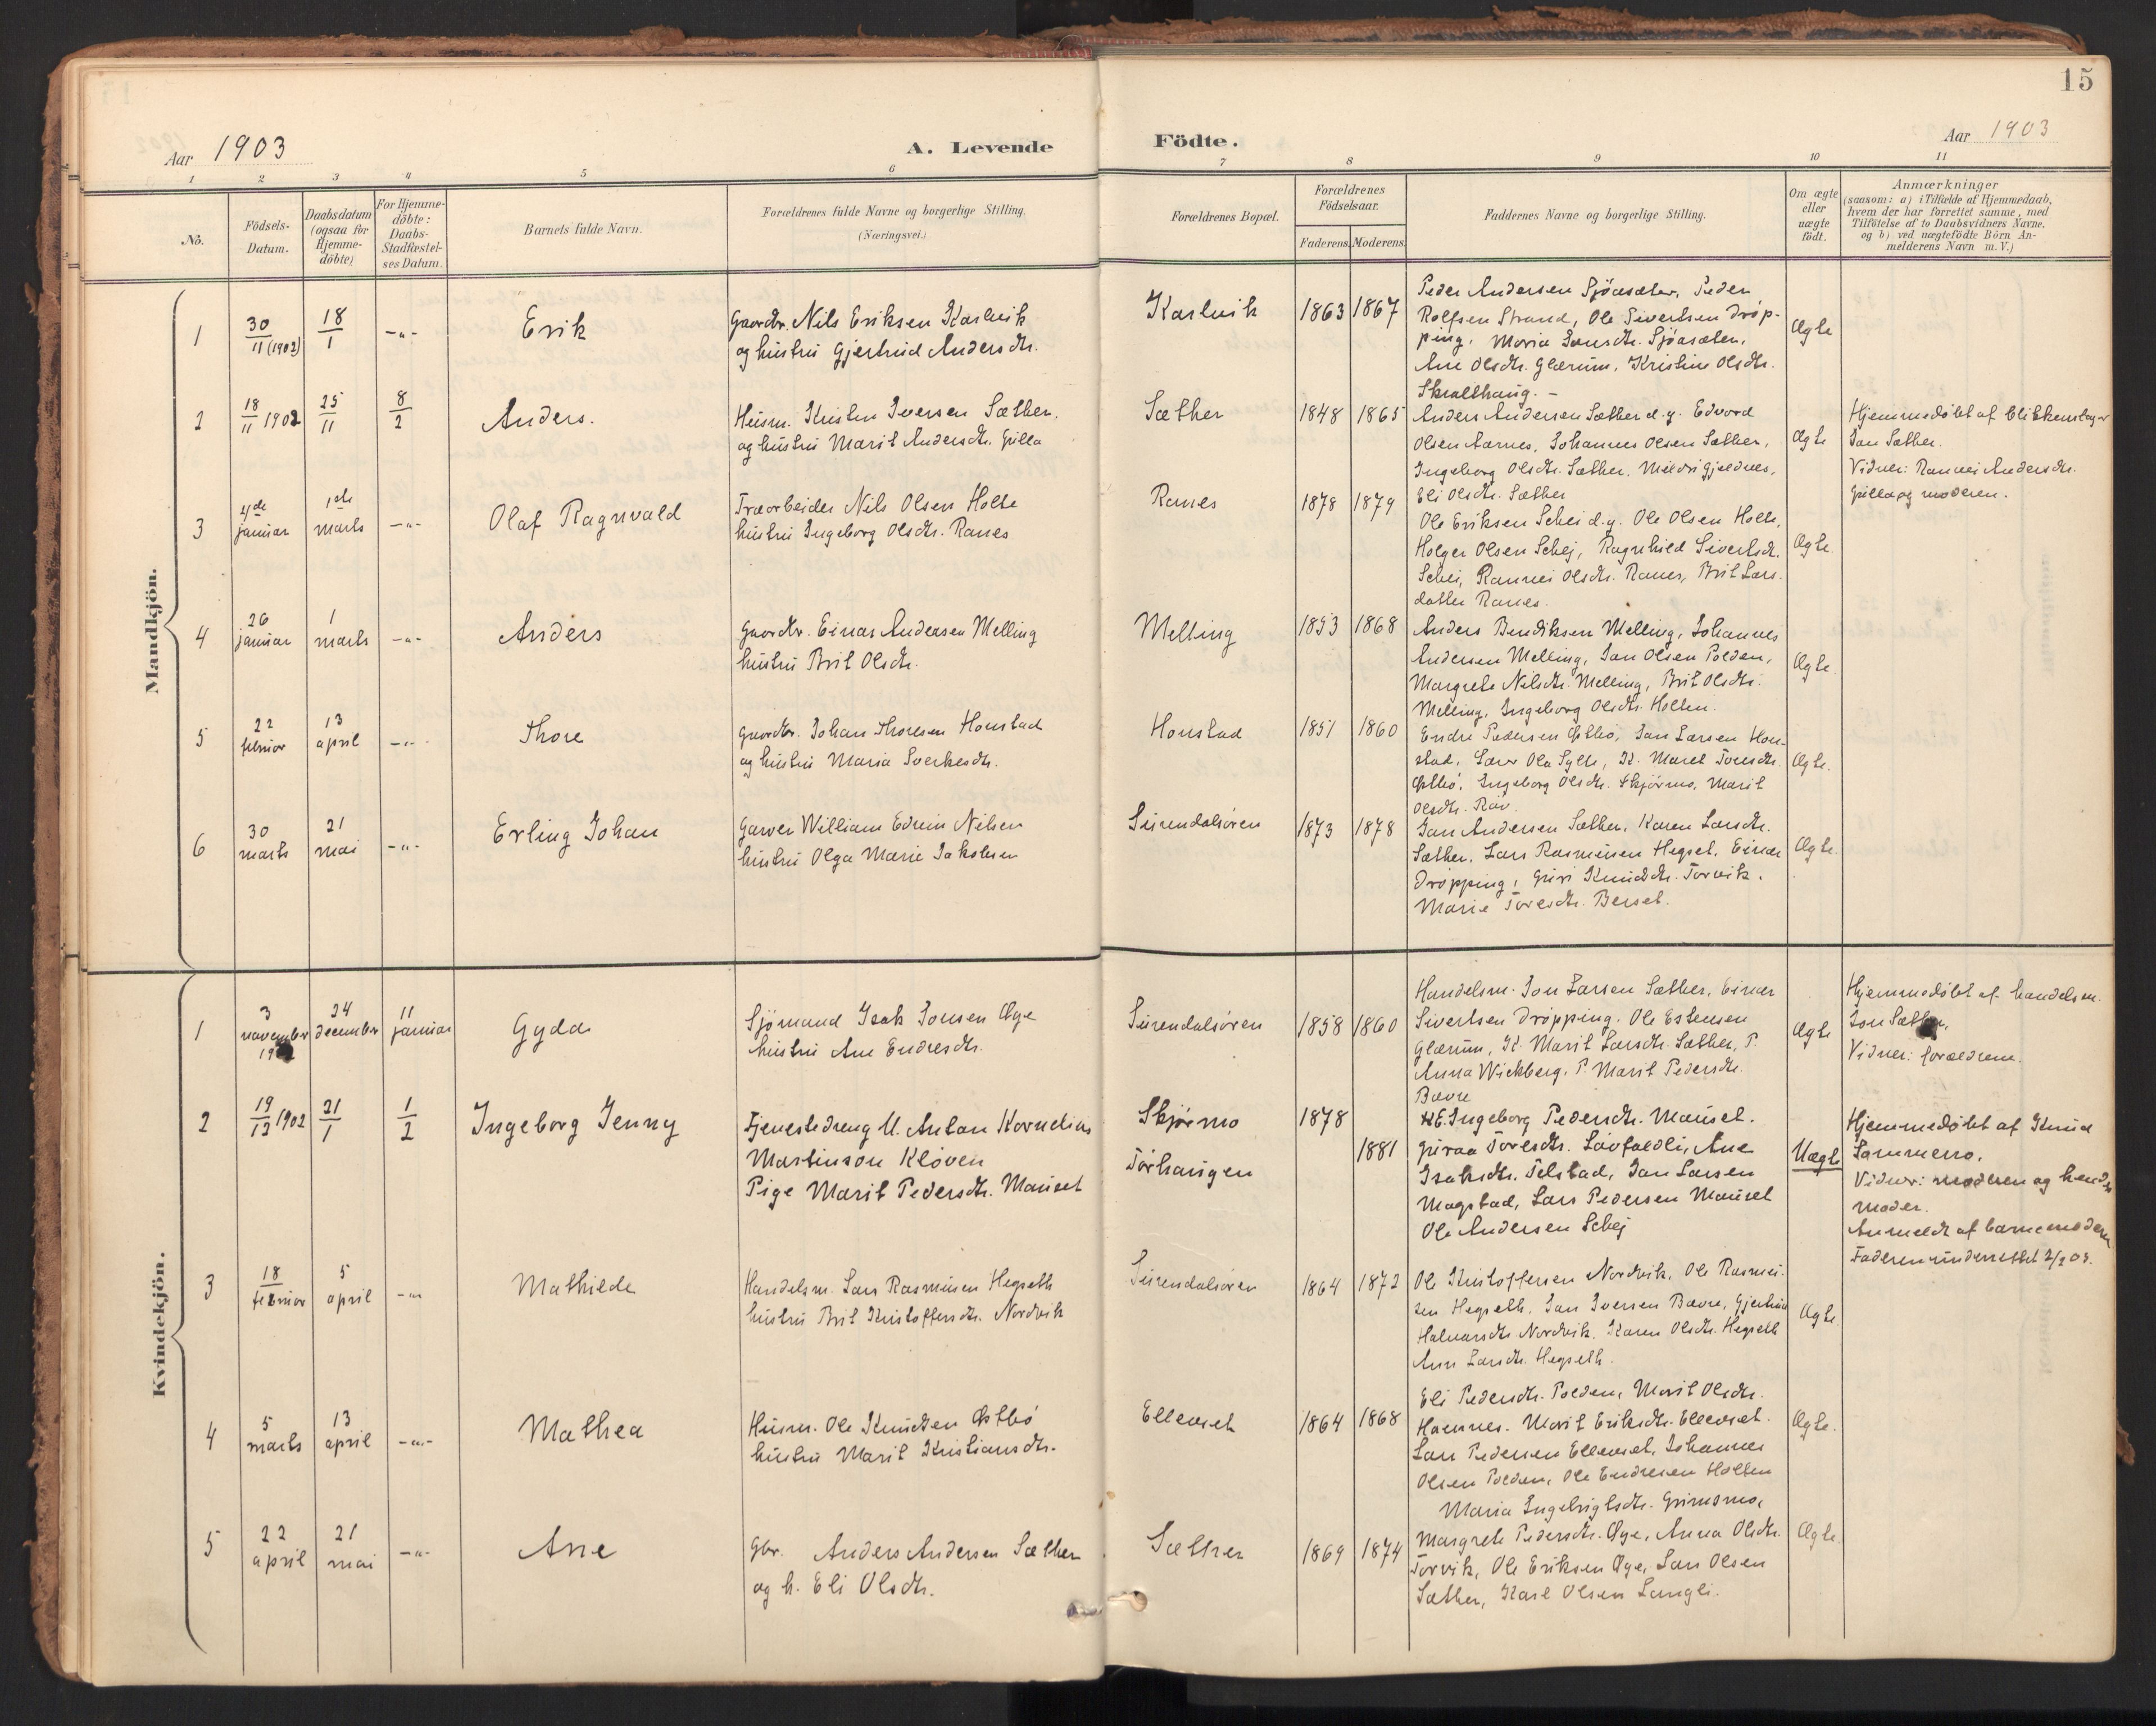 15
Aar 1903
A. Levende Födte.
Aar 1903
1 2 3 4 5 6 7 8 9 10 11
No.
Födsels-
Datum.
Daabsdatum
(ogsaa for
Hjemme-
döbte)
For Hjemme-
döbte:
Daabs-
Stadfæstel-
ses Datum.
Barnets fulde Navn.
Forældrenes fulde Navne og borgerlige Stilling.
(Næringsvei.)
Forældrenes Bopæl.
Forældrenes
Födselsaar.
Faderens. Moderens.
Faddernes Navne og borgerlige Stilling.
Om ægte
eller
uægte
födt.
Anmærkninger
(saasom: a) i Tilfælde af Hjemmedaab,
hvem der har forrettet samme, med
Tilföielse af to Daabsvidners Navne,
og b) ved uægtefödte Börn An-
melderens Navn m. V.)
Mandkjön.
1
30/11 (1902)
18/1
-"-
Erik
Gaardbr. Nils Eriksen Karlvik
og hustru Gjertrud Andersdtr.
Karlvik
1863 1867
Peder Andersen Sjöasæter, Peder
Rolfsen Strand, Ole Sivertsen Dröp-
ping, Maria Jansdtr. Sjöasæter,
Ane Olsdtr. Glærum, Kristine Olsdtr.
Skralthaug. -
Ægte
2
18/11 1902
25/11
8/2
Anders.
Husm. Kristen Iversen Sæther.
og hustru Marit Andersdtr. Gulla
Sæther
1848 1865
Anders Andersen Sæther d.y. Edvard
Olsen Aarnes, Johannes Olsen Sæther,
Ingeborg Olsdtr. Sæther, Mildri Gjeldnes,
Eli Olsdtr. Sæther
Ægte
Hjemmedöbt af blikkenslager
Jon Sæther.
Vidner: Rannei Andersdtr.
Gulla og moderen.
3
4de
januar
1ste
marts
-"-
Olaf Ragnvald
Træarbeider Nils Olsen Holte
hustru Ingeborg Olsdtr. Ranes
Ranes
1878 1879
Ole Eriksen Schei d.y. Ole Olsen Holte,
Holger Olsen Schej, Ragnhild Sivertsdtr.
Schei, Rannei Olsdtr. Ranes, Brit Lars-
datter Ranes.
Ægte.
4
26
januar
1
marts
-"-
Anders
Gaardbr. Einar Andersen Melling
hustru Brit Olsdtr.
Melling
1853 1868
Anders Bendiksen Melling, Johannes
Andersen Melling, Jon Olsen Polden,
Margrete Nilsdtr. Melling, Brit Olsdtr.
Melling, Ingeborg Olsdtr. Holten.
Ægte.
5
22
februar
13
april
-"-
Thore
Gaardbr. Johan Thoresen Honstad
og hustru Maria Sverkesdtr.
Honstad
1851 1860
Endre Pedersen Östbö, Jon Larsen Hon-
stad, Lærer Ola Sylte, K. Maret Toresdtr.
Östbö, Ingeborg Olsdtr. Skjörmo, Marit
Olsdtr. Röv.
Ægte.
6
30
marts
21
mai
-"-
Erling Johan
Garver William Edvin Nilsen
hustru Olga Marie Jakobsen
Surendalsören
1873 1878
Jon Andersen Sæther, Karen Larsdtr.
Sæther, Lars Rasmussen Hegset, Einar
Dröpping, Guri Knudsdtr. Torvik.
Marie Toresdtr. Berset.
Ægte.
Kvindekjön.
1
3
november
24
december
11
januar
Gyda
Sjömand Isak Jonsen Öye
hustru Ane Endresdtr.
Surendalsören
1858 1860
Handelsm. Jon Larsen Sæther, Einar
Sivertsen Dröpping. Ole Estensen
Glærum, K. Marit Larsdtr. Sæther, P.
Anna Wickberg, P. Marit Pedersdtr.
Bævre
Ægte
Hjemmedöbt af handelsm.
Jon Sæther,
Vidner: forældrene.
2
19/12 1902
21/1
1/2
Ingeborg Jenny
Tjenestedreng U. Anton Kornelius
Martinson Klöven
Pige Marit Pedersdtr. Mauset
Skjörmo
Törhaugen
1878
1881
E. Ingeborg Pedersdtr. Mauset.
Guraa Toresdtr. Lövfaldli, Ane
Isaksdtr. Telstad, Jon Larsen
Mogstad, Lars Pedersen Mauset
Ole Andersen Schej
Uægte
Hjemmedöbt af Knud
Sammero.
Vidner: moderen og hendes
moder.
Anmeldt af barnemoderen
Faderen underrettet 2/2 03.
3
18
februar
5
april
-"-
Mathilde
Handelsm. Lars Rasmussen Hegseth
hustru Brit Kristoffersdtr. Nordvik
Surendalsören
1864 1872
Ole Kristoffersen Nordvik, Ole Rasmus-
sen Hegseth, Jon Iversen Bævre, Gjertrud
Halvarsdtr. Nordvik, Karen Olsdtr. Hegseth
Ann Larsdtr. Hegseth.
Ægte
4
5
marts
13
april
-"-
Mathea
Husm. Ole Knudsen Östbö
hustru Marit Kristiansdtr.
Ellevset
1864 1868
Eli Pedersdtr. Polden, Marit Olsdtr.
Hamnes. Marit Eriksdtr. Ellevset.
Lars Pedersen Ellevset, Johannes
Olsen Polden, Ole Endresen Holten
Ægte.
5
22
april
21
mai
-"-
Ane
Gbr. Anders Andersen Sæther
og h. Eli Olsdtr.
Sæther
1869 1874
Maria Ingebrigtsdtr. Grimsmo,
Margrete Pedersdtr. Öye, Anna Olsdtr.
Torvik, Ole Eriksen Öye, Lars Olsen
Sæther, Karl Olsen Langli.
Ægte.